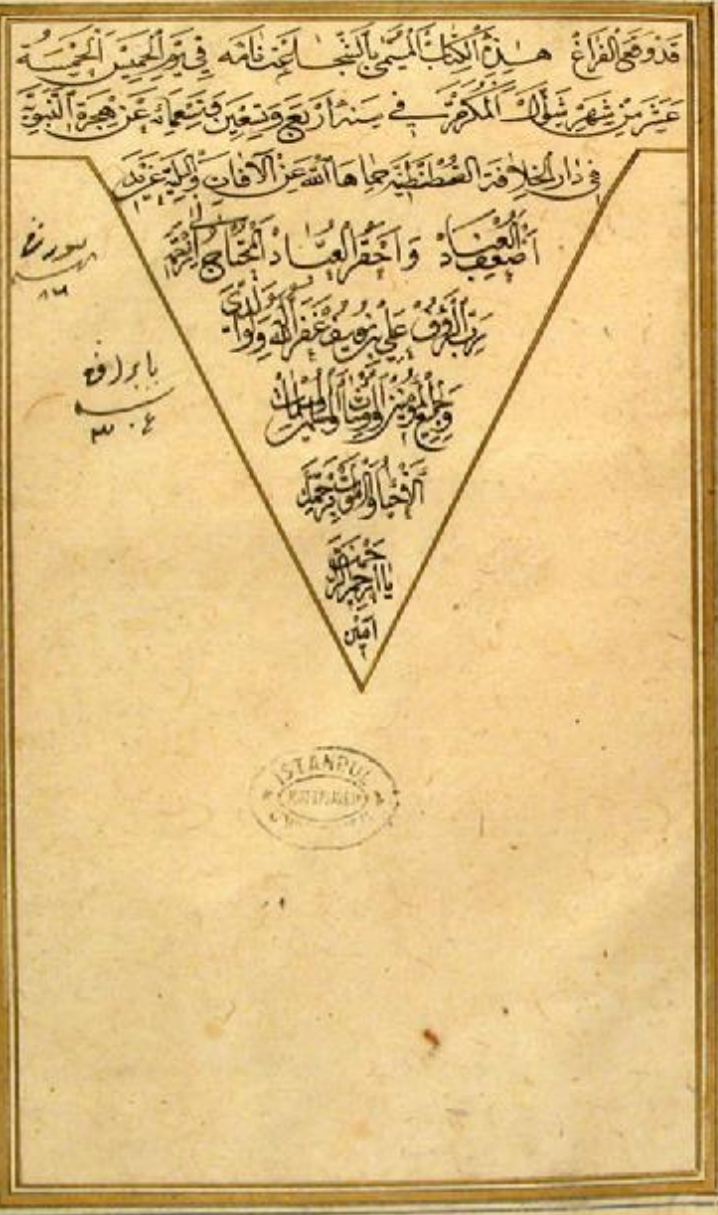 قد وقع الفراغ هذه الكتاب المسمى بالشجاعت نامه في يوم الخميس الخمسة
عشر من شهر شوال المكرم في سنة اربع وتسعين وتسعمائة عن هجرة النبوية
في دار الخلافة القسطنطنية حماها الله عن الافات والبلية عن يد
اضعف العباد واحقر العباد المحتاج الى
رب الرؤف علي بن يوسف غفر الله له ولوالديه
وجميع المؤمنين والمؤمنات والمسلمين والمسلمات
الاحياء والاموات برحمتك
يا ارحم الراحمين
امين
ISTANBUL